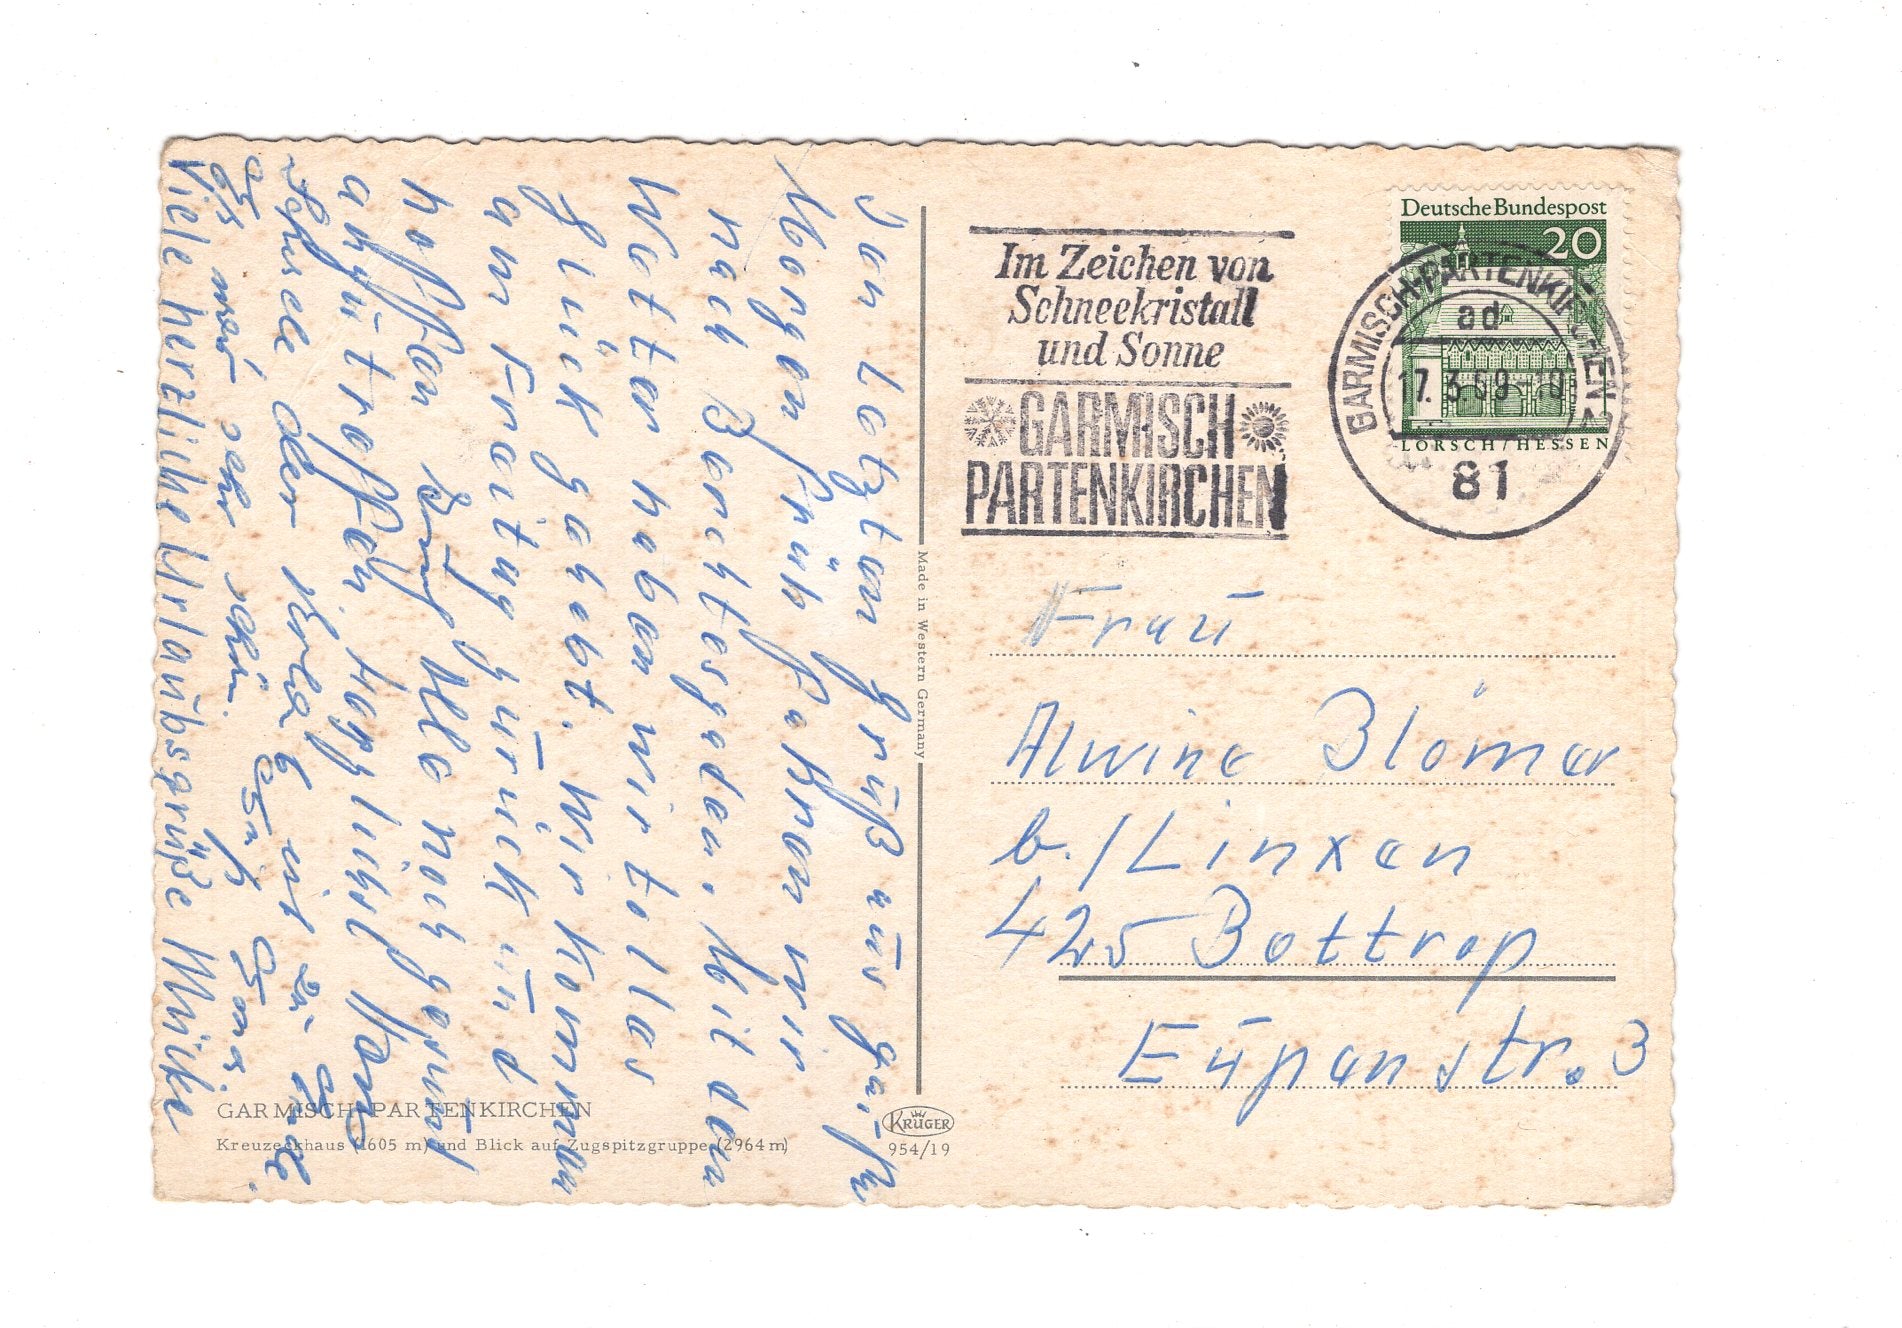 Den letzten Gruß aus Ga.-Pa
Morgen früh fahren wir
nach Berchtesgaden. Mit dem
Wetter haben wir tolles
Glück gehabt. Wir kommen
am Freitag zurück und
hoffen Euch Alle noch gesund
anzutreffen. Herzlichst
Schnee oder
Es war sehr schön.
Viele herzliche Urlaubsgrüße
Im Zeichen von
Schneekristall
und Sonne
GARMISCH
PARTENKIRCHEN
Deutsche Bundespost
20
LORSCH/HESSEN
GARMISCH-PARTENKIRCHEN 2
ad
17.3.69-18
81
Made in Western Germany
Frau
Alwine Blömer
b./Linxen
425 Bottrop
Eupenstr. 3
GARMISCH-PARTENKIRCHEN
Kreuzeckhaus (1605 m) und Blick auf Zugspitzgruppe (2964 m)
KRÜGER
954/19